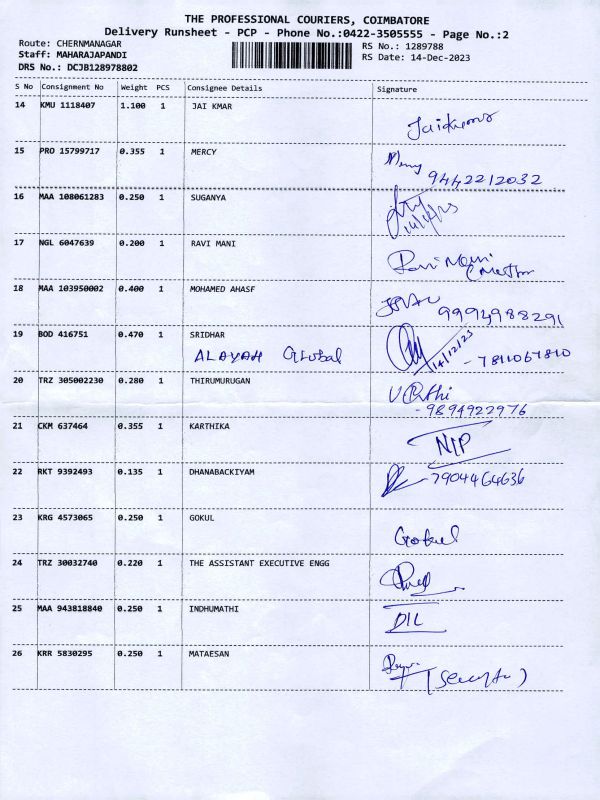 THE PROFESSIONAL COURIERS, COIMBATORE
Delivery Runsheet - PCP - Phone No.:0422-3505555 - Page No.:2
Route: CHERNMANAGAR RS No.: 1289788
Staff: MAHARAJAPANDI RS Date: 14-Dec-2023
DRS No.: DCJB128978802
S No Consignment No Weight PCS Consignee Details Signature
14 KMU 1118407 1.100 1 JAI KMAR
Jaikumar
15 PRO 15799717 0.355 1 MERCY Mercy
9442212032
16 MAA 108061283 0.250 1 SUGANYA
14/12/23
17 NGL 6047639 0.200 1 RAVI MANI
Ravi Mani
(Mother
18 MAA 103950002 0.400 1 MOHAMED AHASF
9994988291
19 BOD 416751 0.470 1 SRIDHAR
ALAYAH Global 14/12/23 - 7811067810
20 TRZ 305002230 0.280 1 THIRUMURUGAN
- 9894922976
21 CKM 637464 0.355 1 KARTHIKA
NIP
22 RKT 9392493 0.135 1 DHANABACKIYAM
- 7904464636
23 KRG 4573065 0.250 1 GOKUL
Gokul
24 TRZ 30032740 0.220 1 THE ASSISTANT EXECUTIVE ENGG
25 MAA 943818840 0.250 1 INDHUMATHI
DIL
26 KRR 5830295 0.250 1 MATAESAN
(Security)